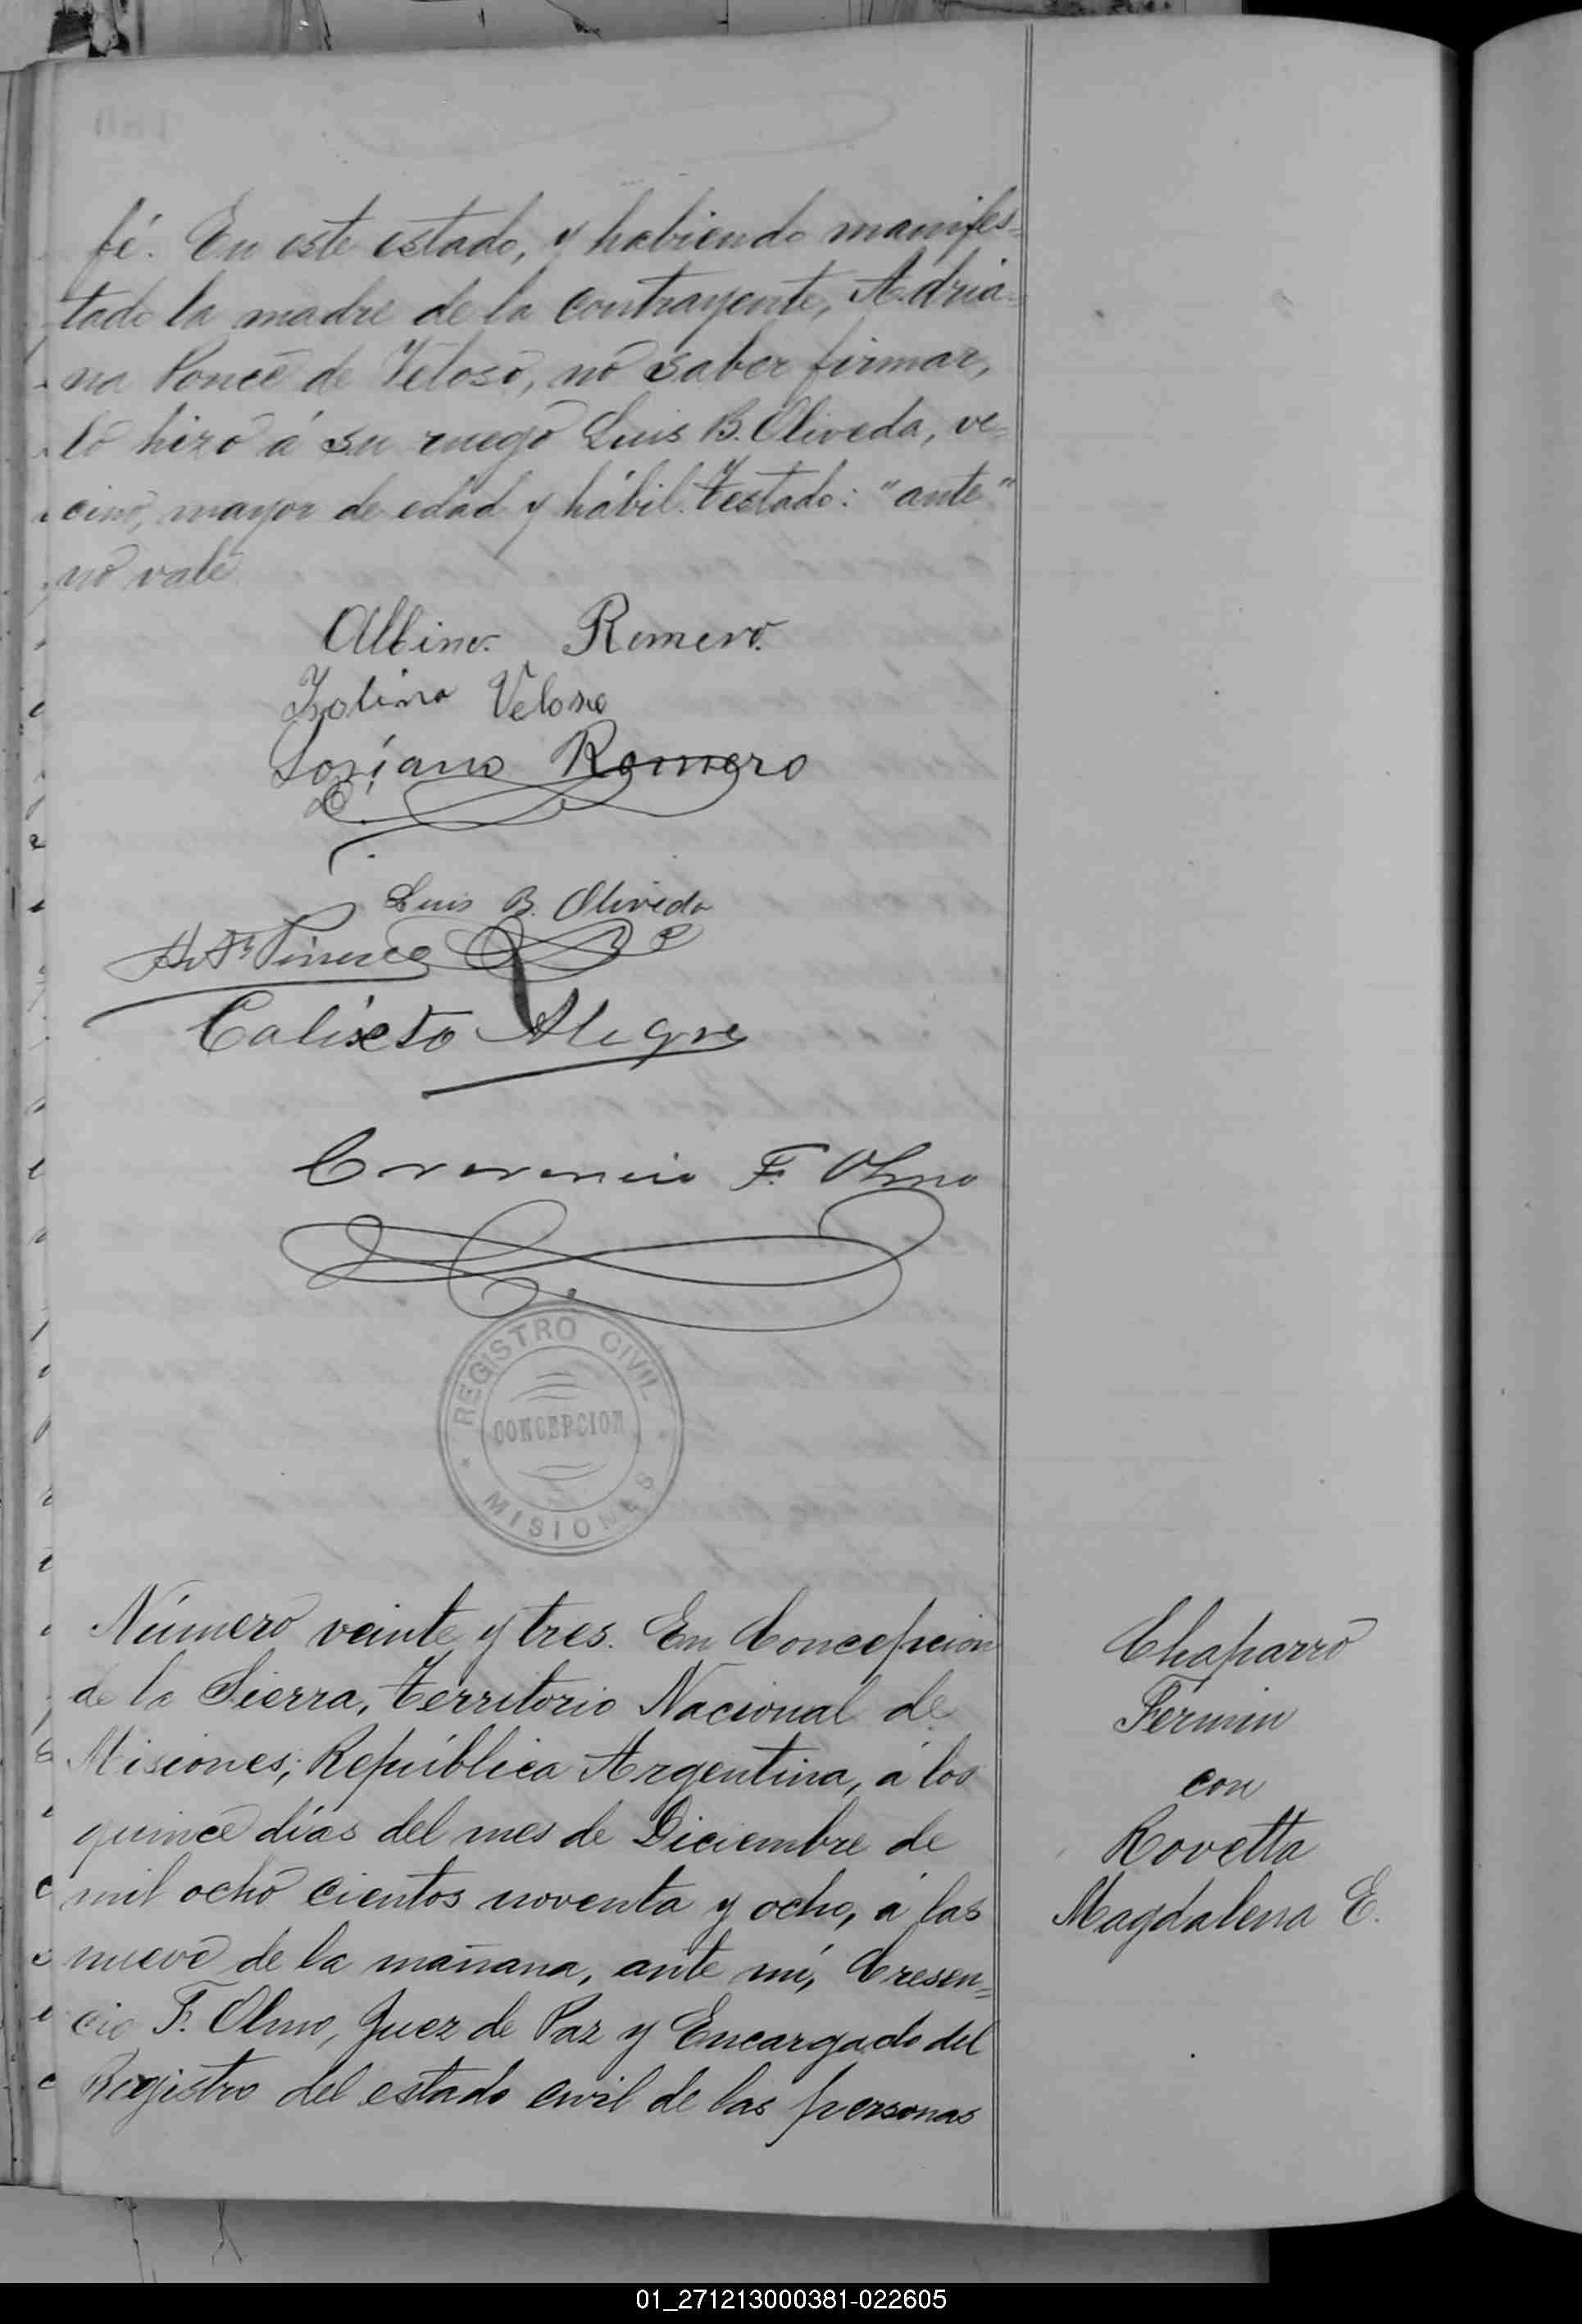 fé. En este estado, y habiendo manifes=
tado la madre de la contrayente, Adria=
na Ponce de Veloso, no saber firmar,
lo hizo á su ruego Luis B. Oliveda, ve=
cino, mayor de edad y hábil. Testado: "ante"
no vale
Albino Romero.
Veloso
Romero
Luis B. Oliveda
Calixto Alegre
F. Olmo
REGISTRO CIVIL
CONCEPCION
MISIONES
Número veinte y tres. En Concepcion
de la Sierra, Territorio Nacional de
Misiones, República Argentina, á los
quince días del mes de Diciembre de
mil ocho cientos noventa y ocho, á las
nueve de la mañana, ante mí, Cresen=
cio F. Olmo, Juez de Paz y Encargado del
Registro del estado civil de las personas
Chaparro
Fermin
con
Rovetta
Magdalena E.
01_271213000381-022605